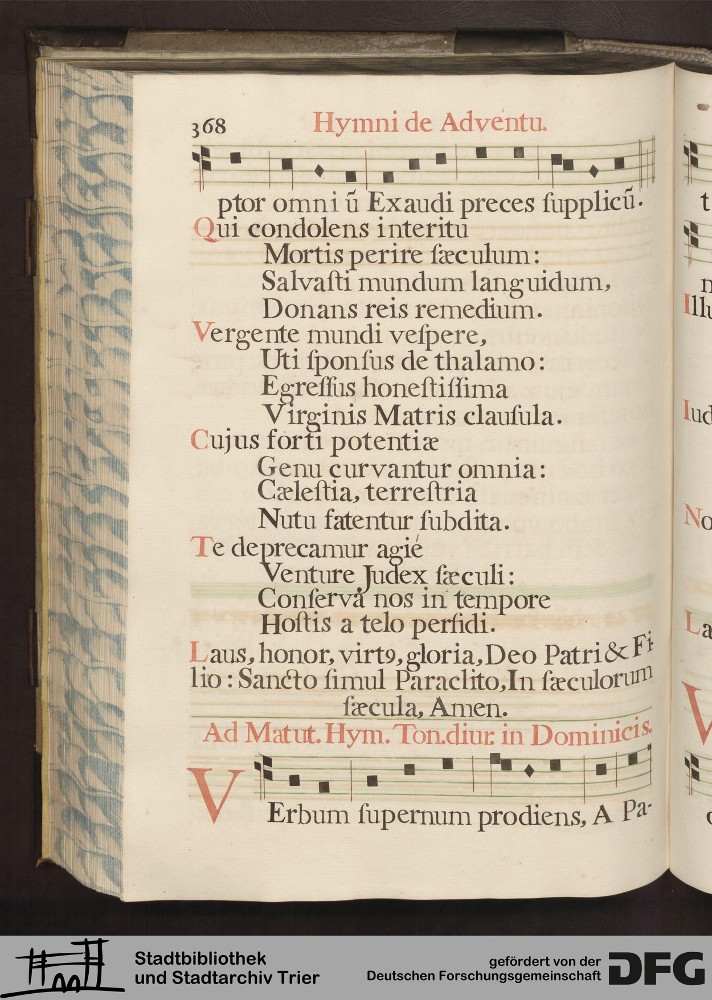 368 Hymni de Adventu.
ptor omni ũ Exaudi preces ſupplicũ.
Qui condolens interitu
Mortis perire ſæculum:
Salvaſti mundum languidum,
Donans reis remedium.
Vergente mundi veſpere,
Uti ſponſus de thalamo:
Egreſſus honeſtiſſima
Virginis Matris clauſula.
Cujus forti potentiæ
Genu curvantur omnia:
Cæleſtia, terreſtria
Nutu fatentur ſubdita.
Te deprecamur agié
Venture Judex ſæculi:
Conſerva nos in tempore
Hoſtis a telo perfidi.
Laus, honor, virt9, gloria, Deo Patri & Fi-
lio: Sancto ſimul Paraclito, In ſæculorum
ſæcula, Amen.
Ad Matut. Hym. Ton. diur. in Dominicis.
VErbum ſupernum prodiens, A Pa-
t
n
Illu
Iud
No
La
V
Stadtbibliothek
und Stadtarchiv Trier
gefördert von der
Deutschen Forschungsgemeinschaft
DFG